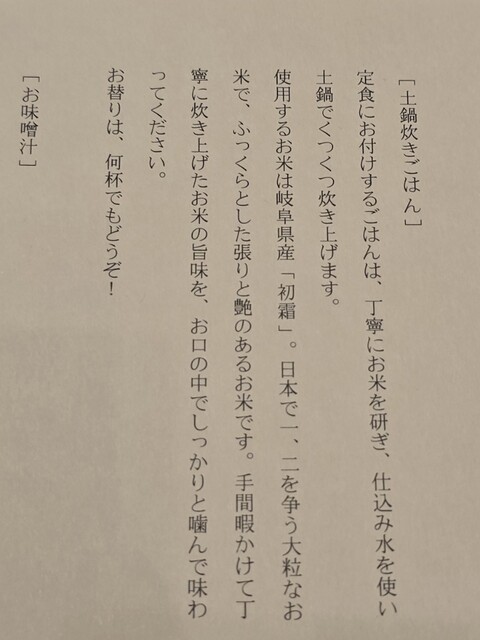 ［土鍋炊きごはん］
定食にお付けするごはんは、丁寧にお米を研ぎ、仕込み水を使い
土鍋でくつくつ炊き上げます。
使用するお米は岐阜県産「初霜」。日本で一、二を争う大粒なお
米で、ふっくらとした張りと艶のあるお米です。手間暇かけて丁
寧に炊き上げたお米の旨味を、お口の中でしっかりと噛んで味わ
ってください。
お替りは、何杯でもどうぞ！
［お味噌汁］